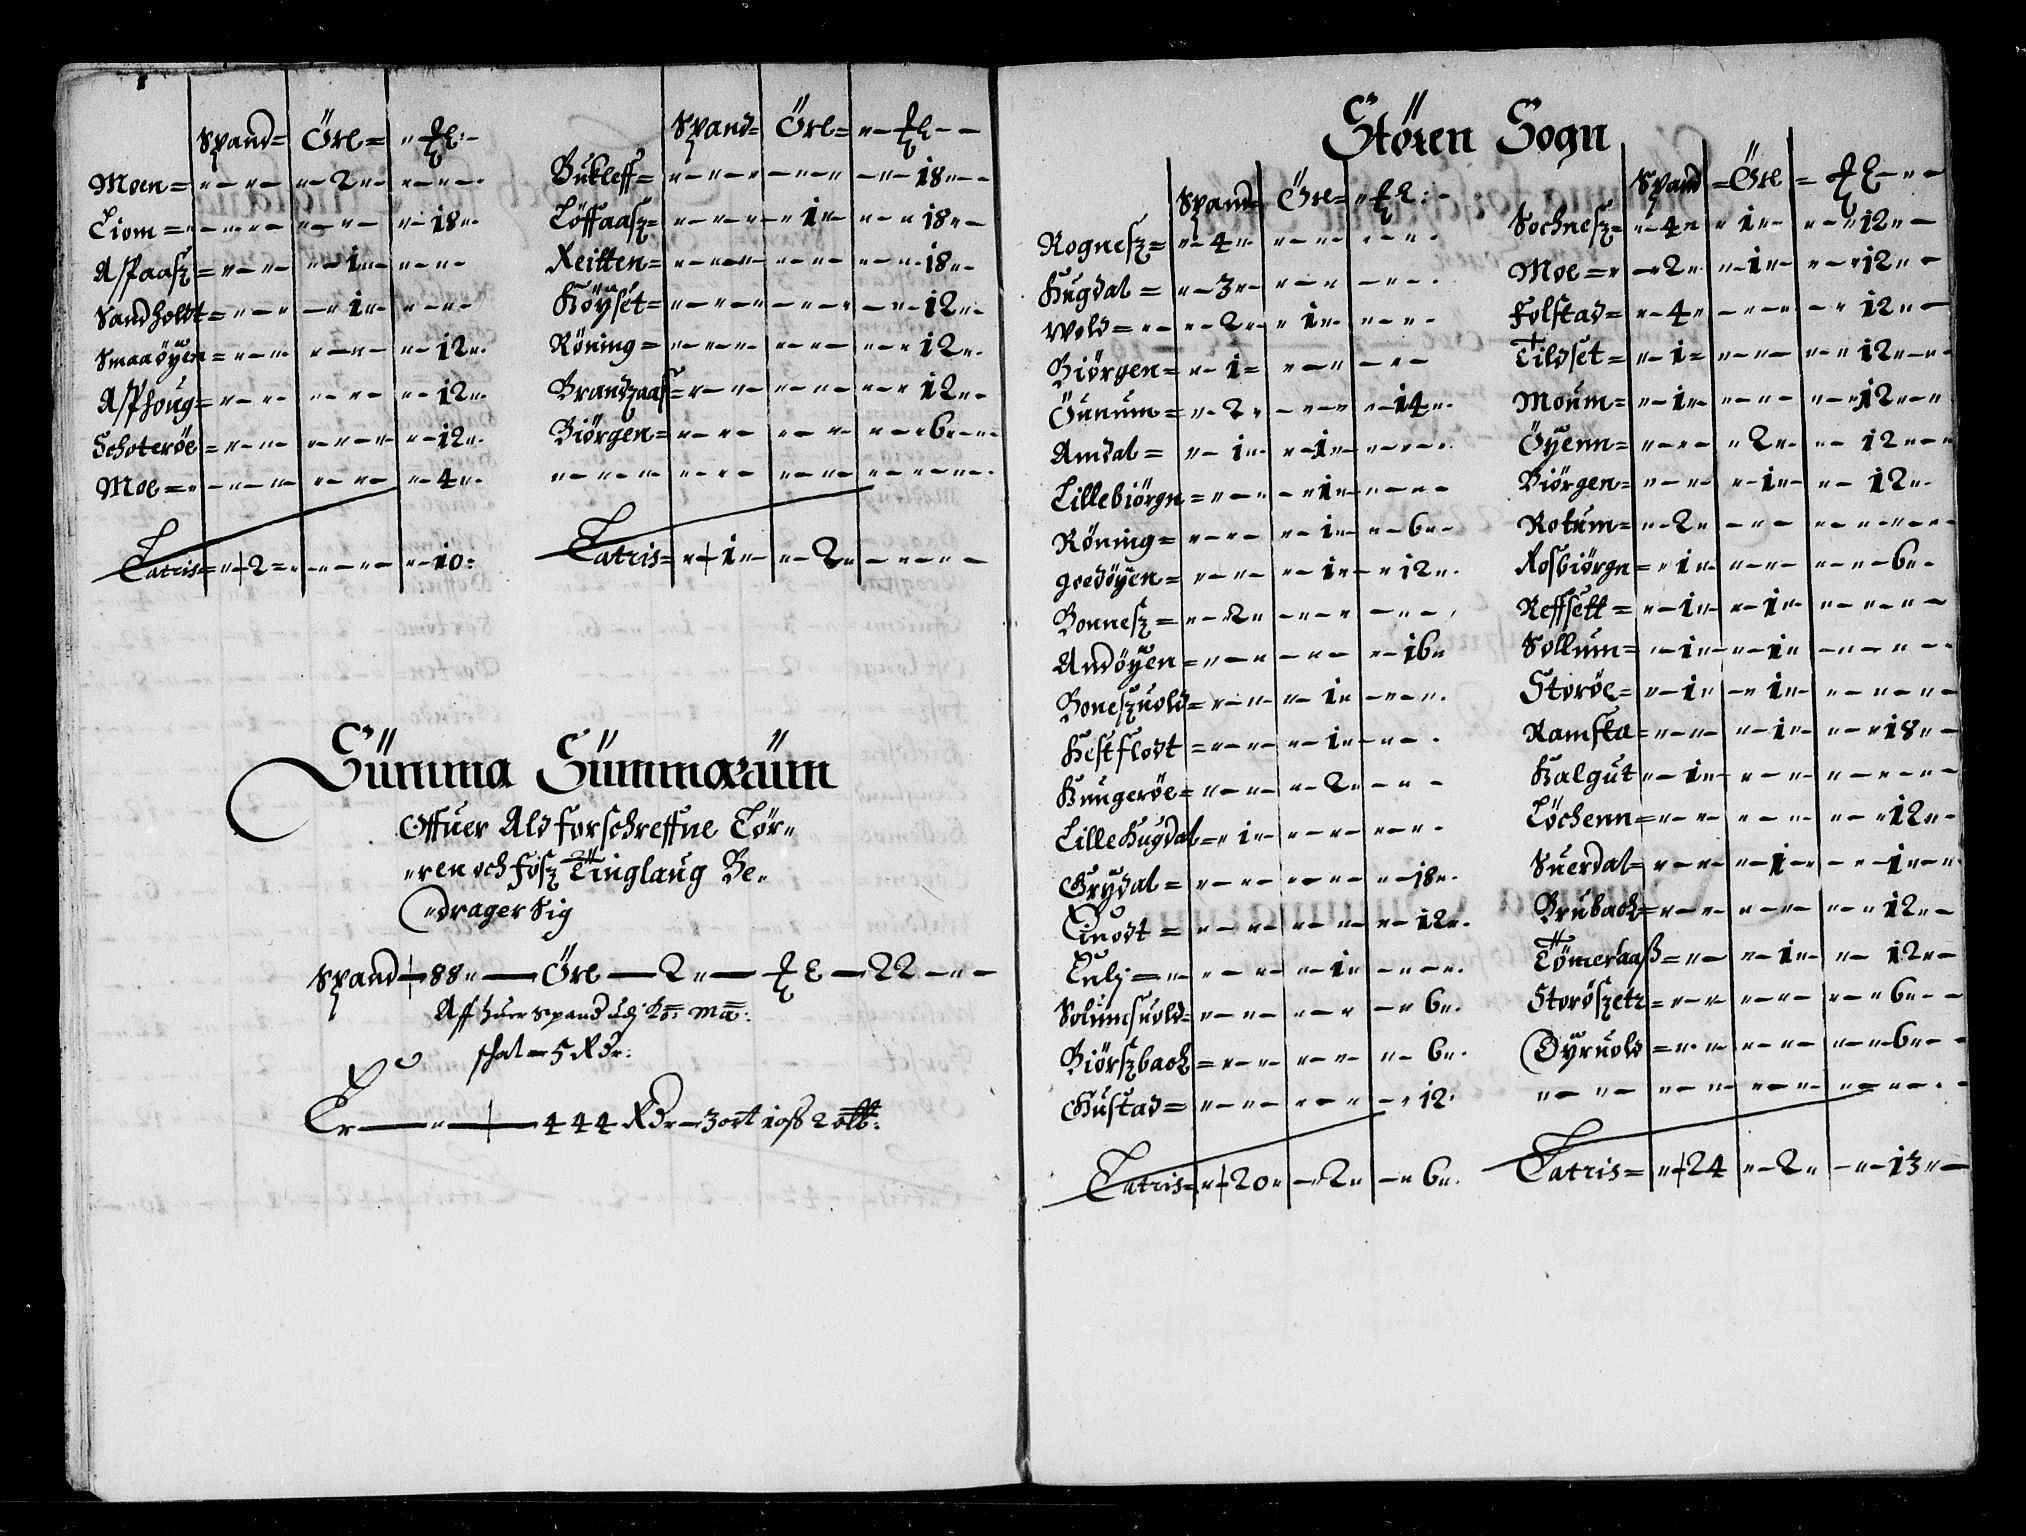 Spand= Öre=
Moen= 2
Liom= 18
Aspaasz= 1
Sandholdt= 1
Smaaöÿen= 12
Asphoug= 12
Schoteröe= 12
Moe= 4
Latris= 2 10
Spand= Öre=
Bukleff= 18
Löffaasz= 1 18
Reitten= 18
Höÿset= 12
Röning= 12
Brandzaas= 12
Biörgen= 6
Latris= 1 2
Summa Summarum
Offuer Ald forschreffne Hör
ren och fosz Tinglaug Be
drager Sig
Spand 88 Öre 2 22
Aff huer Spand udj Ko: Ma:
schat 5 Rdr:
Er 444 Rdr 3 ort 10ß 2
Stören Sogn
Spand= Öre=
Rognesz= 4
Hugdal= 3
Wold= 2 1
Biörgen= 1
Öunum= 2 14
Amdal= 1 1
Lillebiörgn= 1
Röning= 1 6
goedöÿen= 1 12
Bonnesz= 2
Andöÿen= 16
Boneszuold= 1
Hestflodt= 1
Hungeröe= 2
Lille Hugdal= 1
Grÿdal= 18
12
1
Solumsuold= 6
Biörszback= 6
Gustad= 12
Latris= 20 2 6
Spand= Öre=
Sochnesz= 4 1 12
Moe= 2 1 12
Folstad= 4 12
Tildset= 1 12
Moum= 1 12
Öÿenn= 2 12
Biörgen= 1 12
Rotum= 2
Rosbiörgn= 1 6
Reffsett= 1 1
Sollum= 1 1
Storöe= 1 1
Ramsta= 1 18
Halgut 1
Löchenn= 12
Suerdal= 1 1
Brubach= 12
Tömeraaß= 1 12
Storöszetr= 6
Dÿruold= 6
Latris= 24 2 13